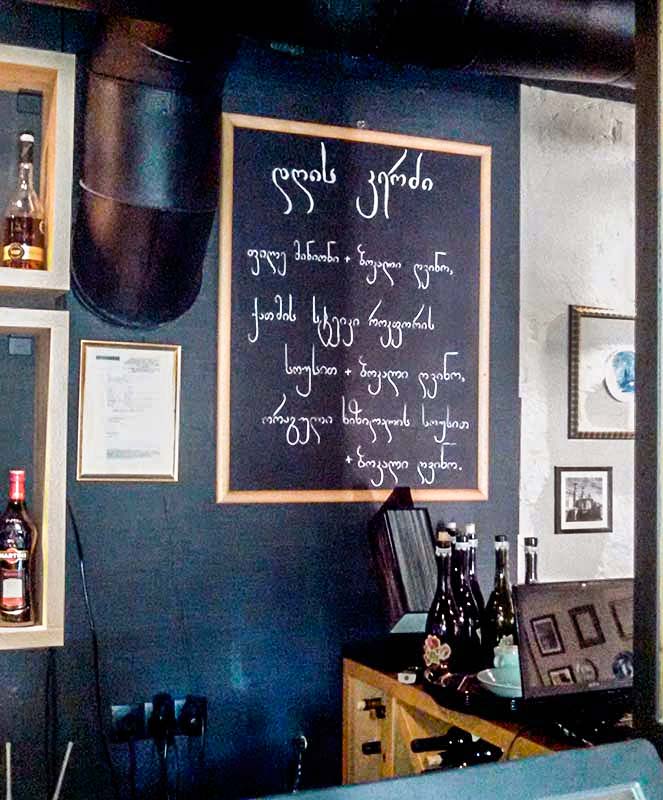 დღის კერძი
ფილე მინიონი + ბოკალი ღვინო,
ქათმის სტეიკი როკფორის
სოუსით + ბოკალი ღვინო,
ორაგული ხიზილალის სოუსით
+ ბოკალი ღვინო.
MARTINI